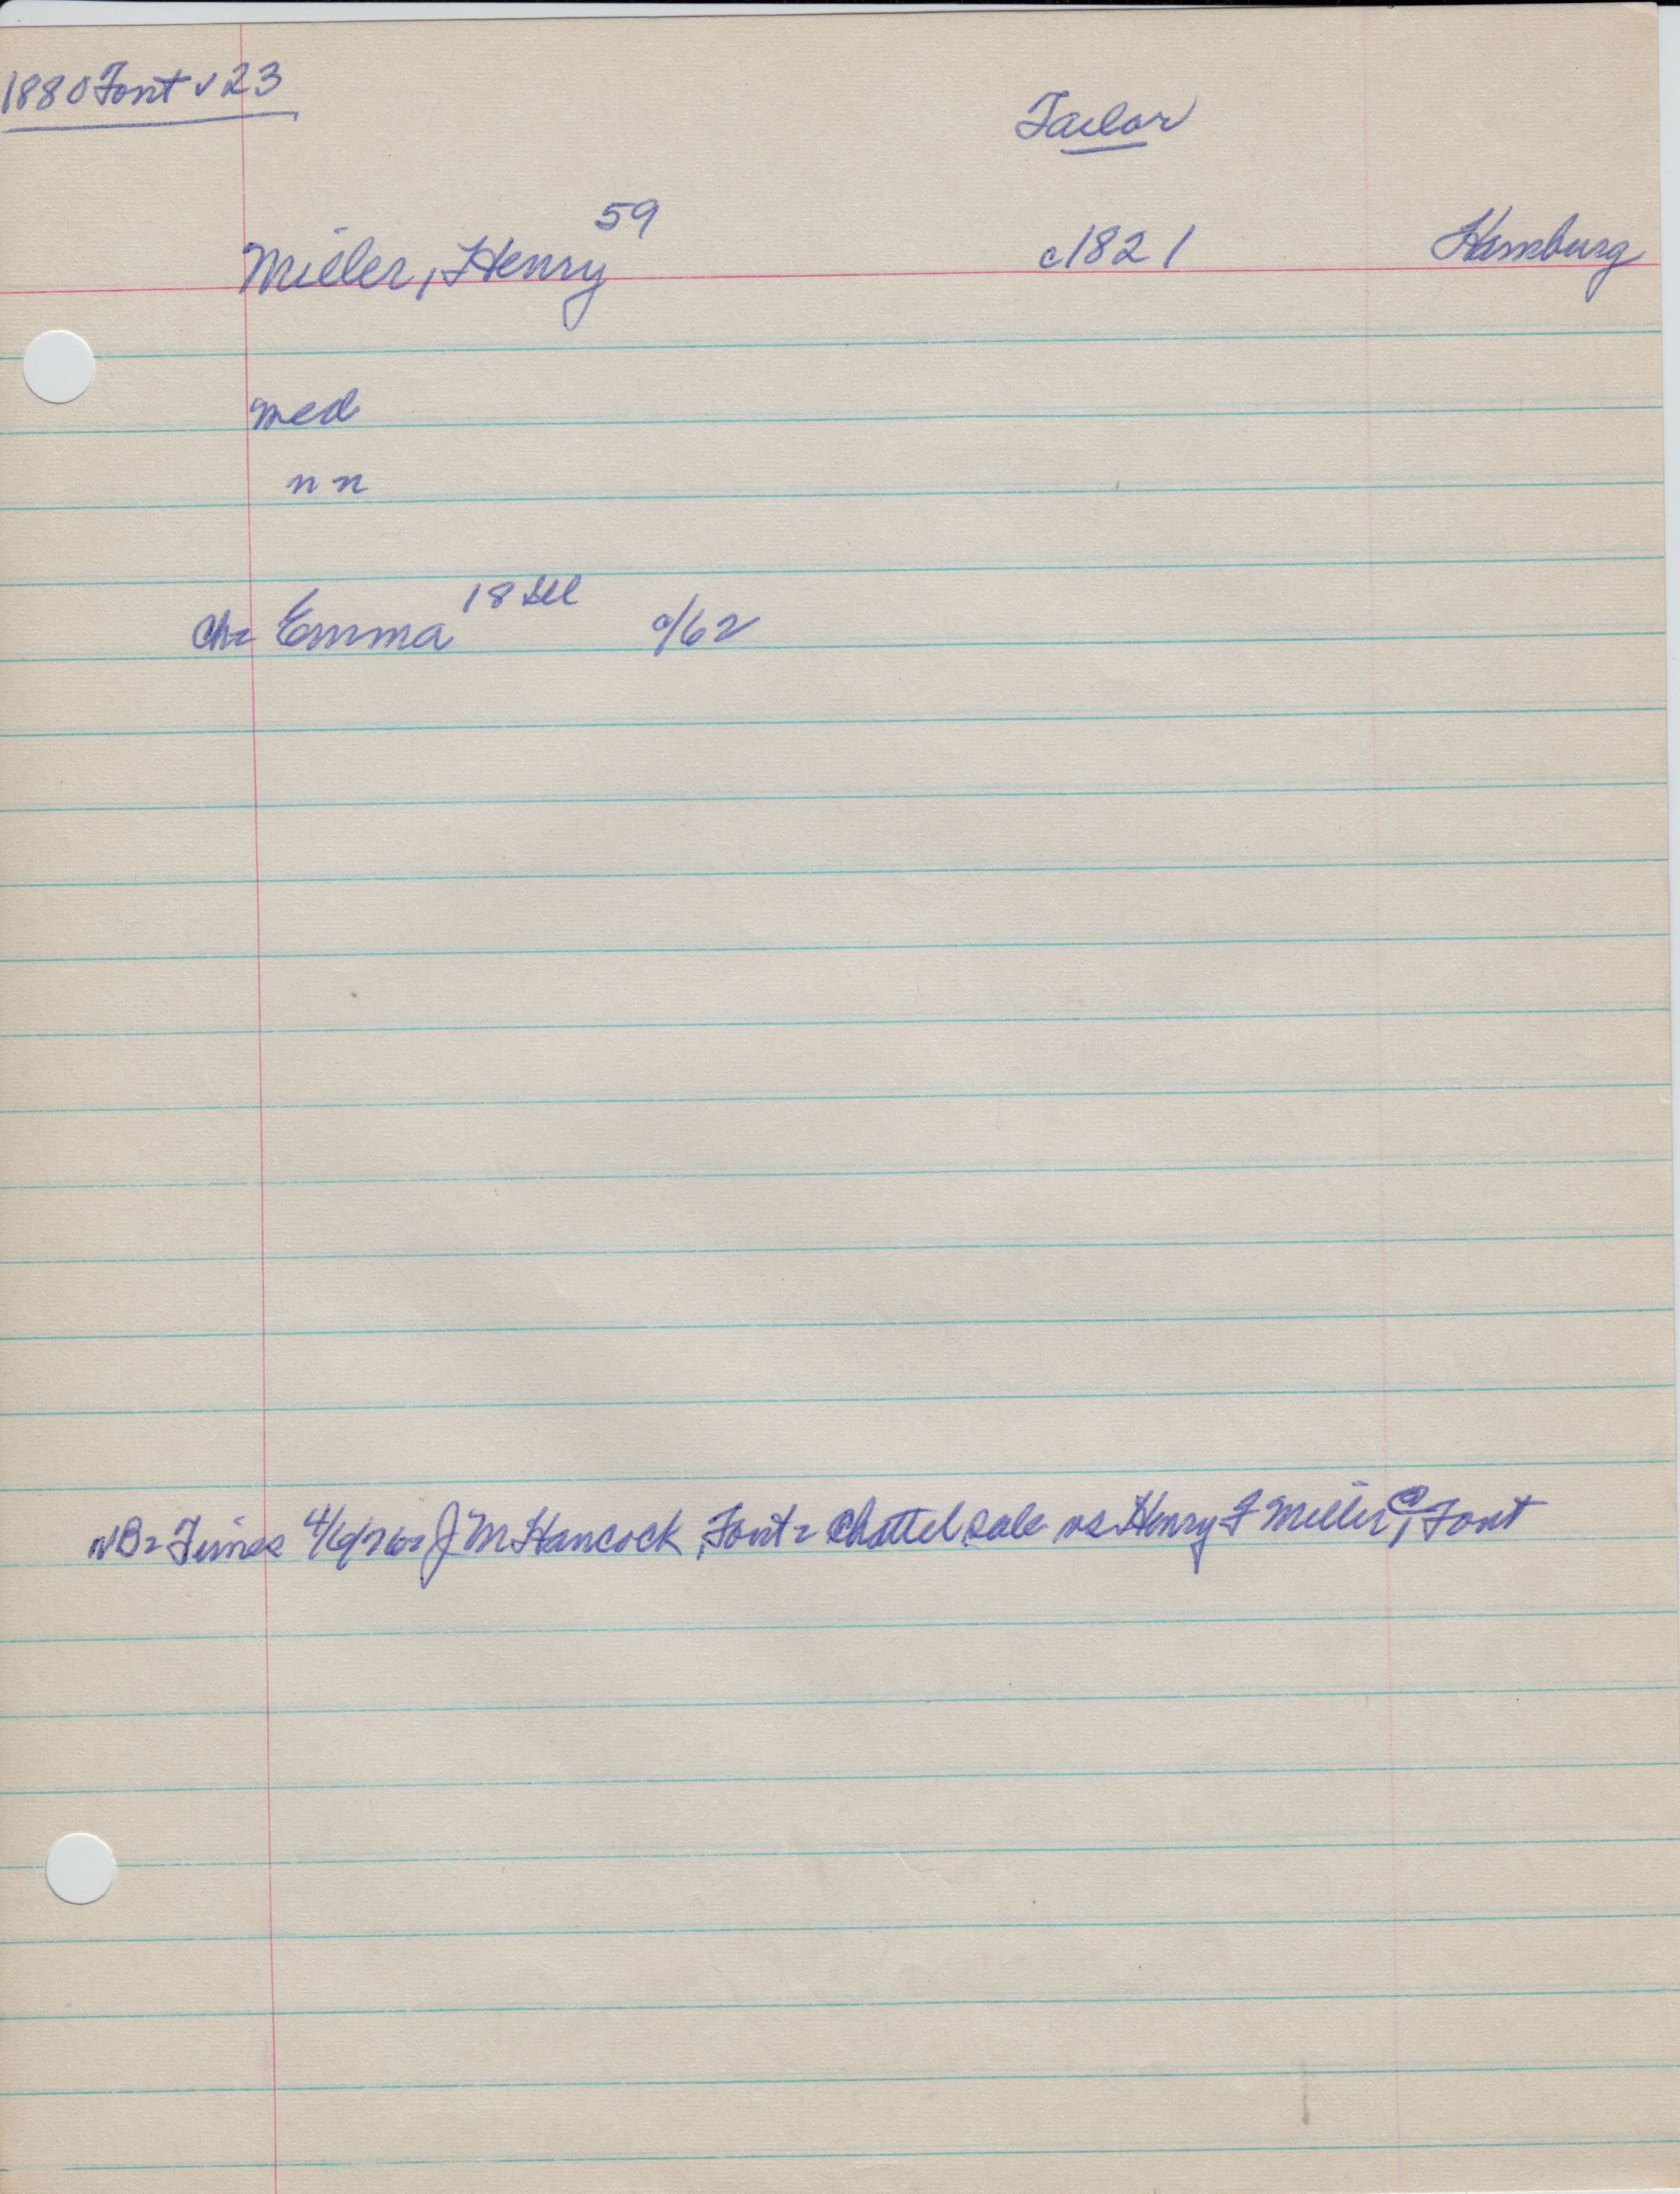 1880 Font v 23
Tailor
Miller, Henry 59 c1821 Hamburg
med
n n
Ch= Emma 18 Del c/62
NB= Times 4/6/76= J M Hancock, Font= Chattel sale vs Henry F Miller, Font